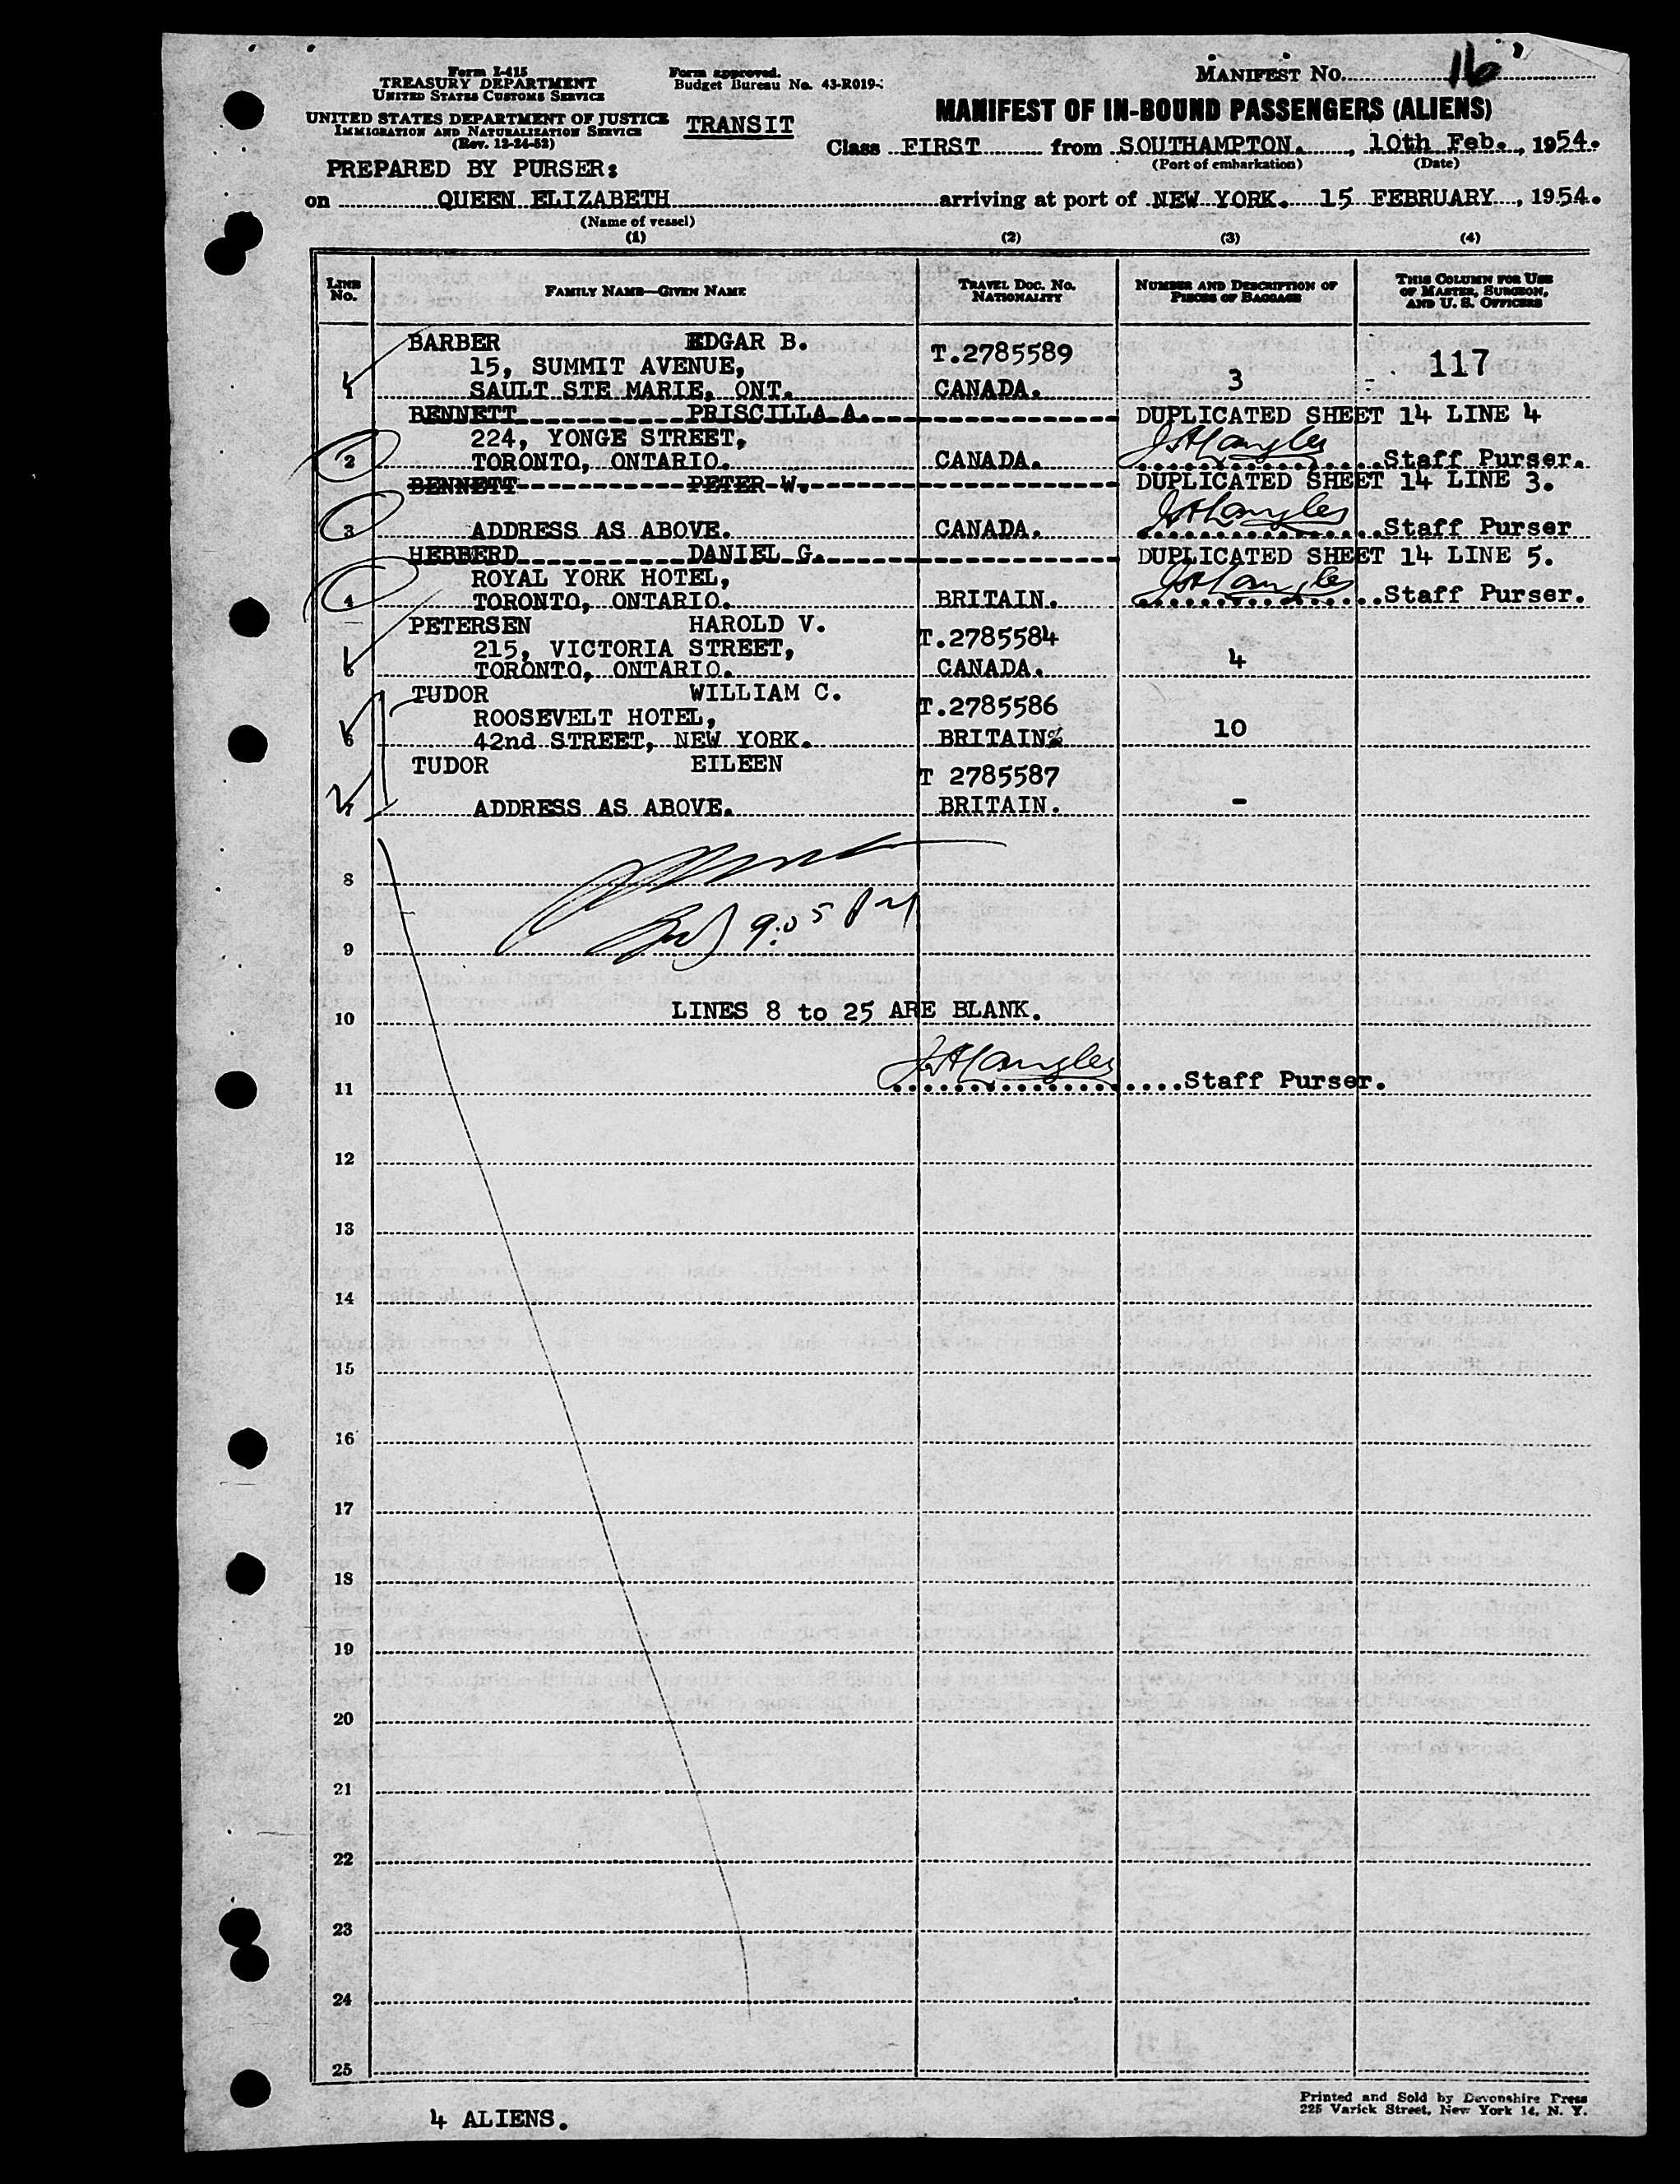 Form I-415
TREASURY DEPARTMENT
UNITED STATES CUSTOMS SERVICE
UNITED STATES DEPARTMENT OF JUSTICE
IMMIGRATION AND NATURALIZATION SERVICE
(Rev. 12-24-52)
Form approved.
Budget Bureau No. 43-R019-
TRANSIT
MANIFEST NO. 16
MANIFEST OF IN-BOUND PASSENGERS (ALIENS)
Class FIRST from SOUTHAMPTON., 10th Feb., 1954.
(Port of embarkation) (Date)
PREPARED BY PURSER:
on QUEEN ELIZABETH arriving at port of NEW YORK. 15 FEBRUARY, 1954.
(Name of vessel)
(1) (2) (3) (4)
LINE NO. FAMILY NAME—GIVEN NAME TRAVEL DOC. NO. NATIONALITY NUMBER AND DESCRIPTION OF PIECES OF BAGGAGE THIS COLUMN FOR USE OF MASTER, SURGEON, AND U. S. OFFICERS
BARBER EDGAR B. T.2785589 117
15, SUMMIT AVENUE,
1 SAULT STE MARIE, ONT. CANADA. 3
BENNETT PRISCILLA A. DUPLICATED SHEET 14 LINE 4
224, YONGE STREET,
2 TORONTO, ONTARIO. CANADA. Staff Purser.
BENNETT PETER W. DUPLICATED SHEET 14 LINE 3.
3 ADDRESS AS ABOVE. CANADA. Staff Purser
HEBBERD DANIEL G. DUPLICATED SHEET 14 LINE 5.
ROYAL YORK HOTEL,
4 TORONTO, ONTARIO. BRITAIN. Staff Purser.
PETERSEN HAROLD V. T.2785584
215, VICTORIA STREET,
TORONTO, ONTARIO. CANADA. 4
TUDOR WILLIAM C. T.2785586
ROOSEVELT HOTEL,
6 42nd STREET, NEW YORK. BRITAIN. 10
TUDOR EILEEN T 2785587
7 ADDRESS AS ABOVE. BRITAIN. -
8
9:05 PM
9
LINES 8 to 25 ARE BLANK.
10
11 Staff Purser.
12
13
14
15
16
17
18
19
20
21
22
23
24
25
4 ALIENS.
Printed and Sold by Devonshire Press
225 Varick Street, New York 14, N. Y.